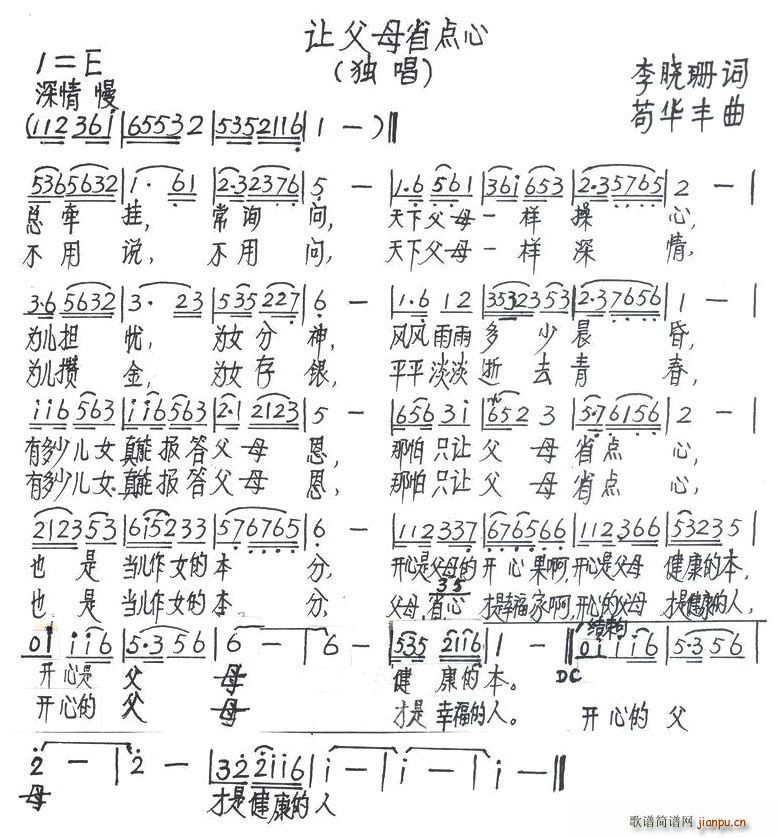 让父母省点心
(独唱)
1=E
深情 慢
李晓珊词
苟华丰曲
(112 36i|65532|5352116|1 —)‖
536 5632|1· 61|2·32376|5 —|1·6 561|36i 653|2·35765|2 —|
总牵挂, 常询问, 天下父母一样操心,
不用说, 不用问, 天下父母一样深情,
3·6 5632|3· 23|535 227|6 —|1·6 12|3532353|2·37656|1 —|
为儿担忧, 为女分神, 风风雨雨多少晨昏,
为儿攒金, 为女存银, 平平淡淡逝去青春,
ii6 563|ii6563|2·1 2123|5 —|6563i|6523|5·76156|2 —|
有多少儿女真能报答父母恩, 那怕只让父母省点心,
有多少儿女真能报答父母恩, 那怕只让父母省点心,
212353|6i5233|576765|6 —|112337|676566|112366|53235|
也是当儿作女的本分, 开心是父母的开心果啊,开心是父母 健康的本,
35
也是当儿作女的本分, 父母省心才是幸福家啊,开心的父母 才是健康的人,
结构
0i ii6|5·356|6 —|6 —|535 2116|1 —‖0i ii6|5·356|
DC
开心是父母 健康的本。
开心的父母 才是幸福的人。 开心的父
2 —|2 —|322ii6|i —|i —|i —‖
母 才是健康的人
歌谱简谱网
jianpu.cn